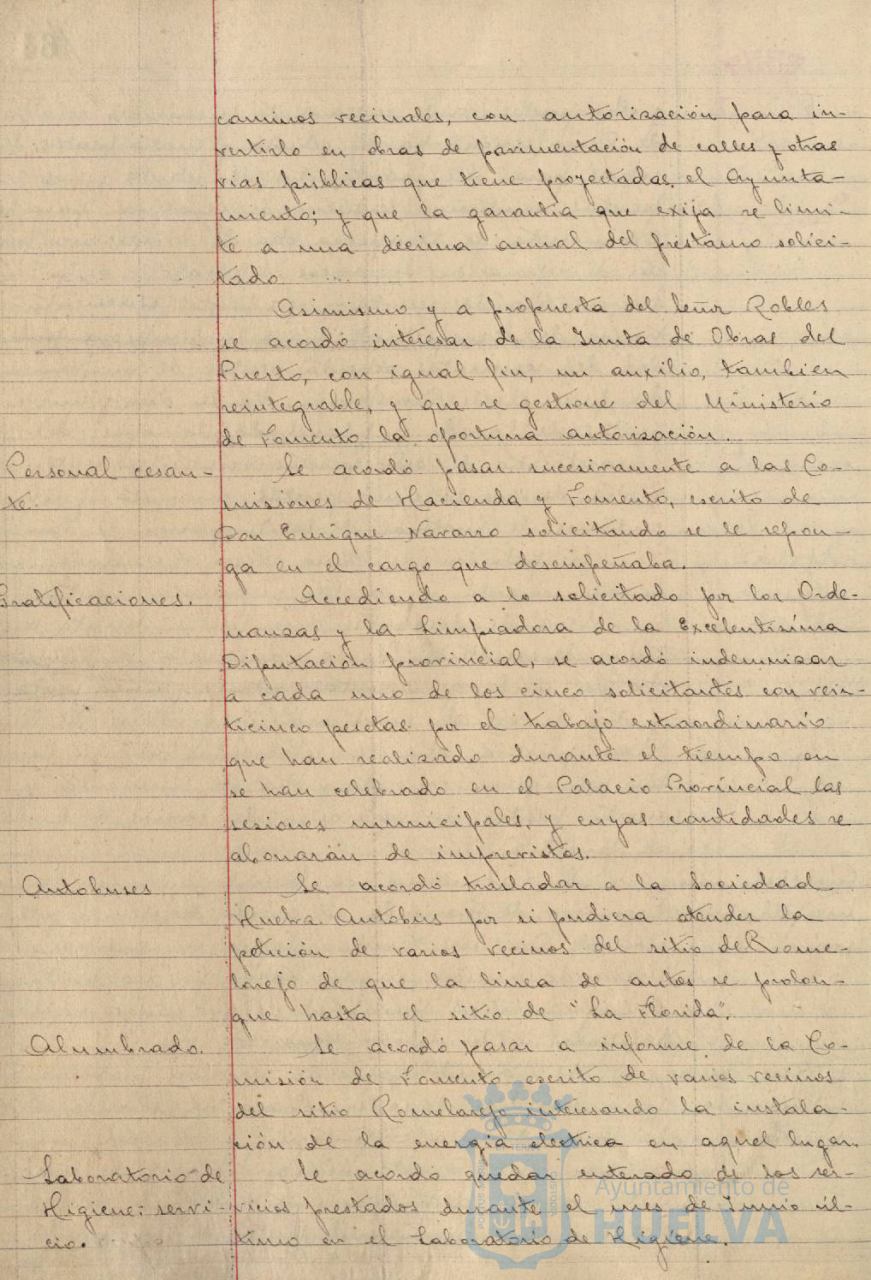 caminos vecinales, con autorización para in-
vertirlo en obras de pavimentación de calles y otras
vias públicas que tiene proyectadas el Ayunta-
miento; y que la garantia que exija se limi-
te a una décima anual del préstamo solici-
tado.
Asimismo y a propuesta del Señor Robles
se acordó interesar de la Junta de Obras del
Puerto, con igual fin, un auxilio, tambien
reintegrable, y que se gestione del Ministerio
de Fomento la oportuna autorización.
Personal cesan-
te.
Se acordó pasar sucesivamente a las Co-
misiones de Hacienda y Fomento, escrito de
Don Enrique Navarro solicitando se le repon-
ga en el cargo que desempeñaba.
Gratificaciones.
Accediendo a lo solicitado por los Orde-
nanzas y la Limpiadora de la Excelentísima
Diputación provincial, se acordó indemnizar
a cada uno de los cinco solicitantes con vein-
ticinco pesetas por el trabajo extraordinario
que han realizado durante el tiempo en
se han celebrado en el Palacio Provincial las
sesiones municipales, y cuyas cantidades se
abonarán de imprevistos.
Autobuses
Se acordó trasladar a la Sociedad
Huelva Autobús por si pudiera atender la
petición de varios vecinos del sitio de Rome-
larejo de que la linea de autos se prolon-
gue hasta el sitio de "La Florida".
Alumbrado.
Se acordó pasar a informe de la Co-
misión de Fomento escrito de varios vecinos
del sitio Romelarejo interesando la instala-
ción de la energia electrica en aquel lugar.
Laboratorio de
Higiene: servi-
cio.
Se acordo quedar enterado de los ser-
vicios prestados durante el mes de Junio úl-
timo en el Laboratorio de Higiene.
Ayuntamiento de
HUELVA